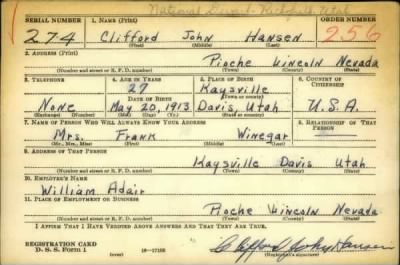 National Guard - Richfield, Utah
SERIAL NUMBER 1. NAME (Print) ORDER NUMBER
274 Clifford John Hansen 256
(First) (Middle) (Last)
2. ADDRESS (Print)
Pioche Lincoln Nevada
(Number and street or R. F. D. number) (Town) (County) (State)
3. TELEPHONE 4. AGE IN YEARS 5. PLACE OF BIRTH 6. COUNTRY OF CITIZENSHIP
27 Kaysville
(Town or county)
DATE OF BIRTH
None May 20, 1913 Davis, Utah U.S.A.
(Exchange) (Number) (Mo.) (Day) (Yr.) (State or country)
7. NAME OF PERSON WHO WILL ALWAYS KNOW YOUR ADDRESS 8. RELATIONSHIP OF THAT PERSON
Mrs. Frank Winegar
(Mr., Mrs., Miss) (First) (Middle) (Last)
9. ADDRESS OF THAT PERSON
Kaysville Davis Utah
(Number and street or R. F. D. number) (Town) (County) (State)
10. EMPLOYER'S NAME
William Adair
11. PLACE OF EMPLOYMENT OR BUSINESS
Pioche Lincoln Nevada
(Number and street or R. F. D. number) (Town) (County) (State)
I AFFIRM THAT I HAVE VERIFIED ABOVE ANSWERS AND THAT THEY ARE TRUE.
REGISTRATION CARD
D. S. S. Form 1 (over) 16-17105 Clifford John Hansen
(Registrant's signature)